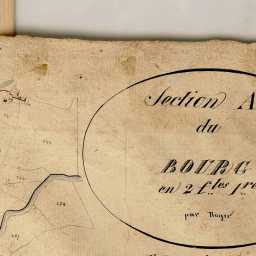 Section A
du
BOURG
en 2 f.les 1.re
par Roger